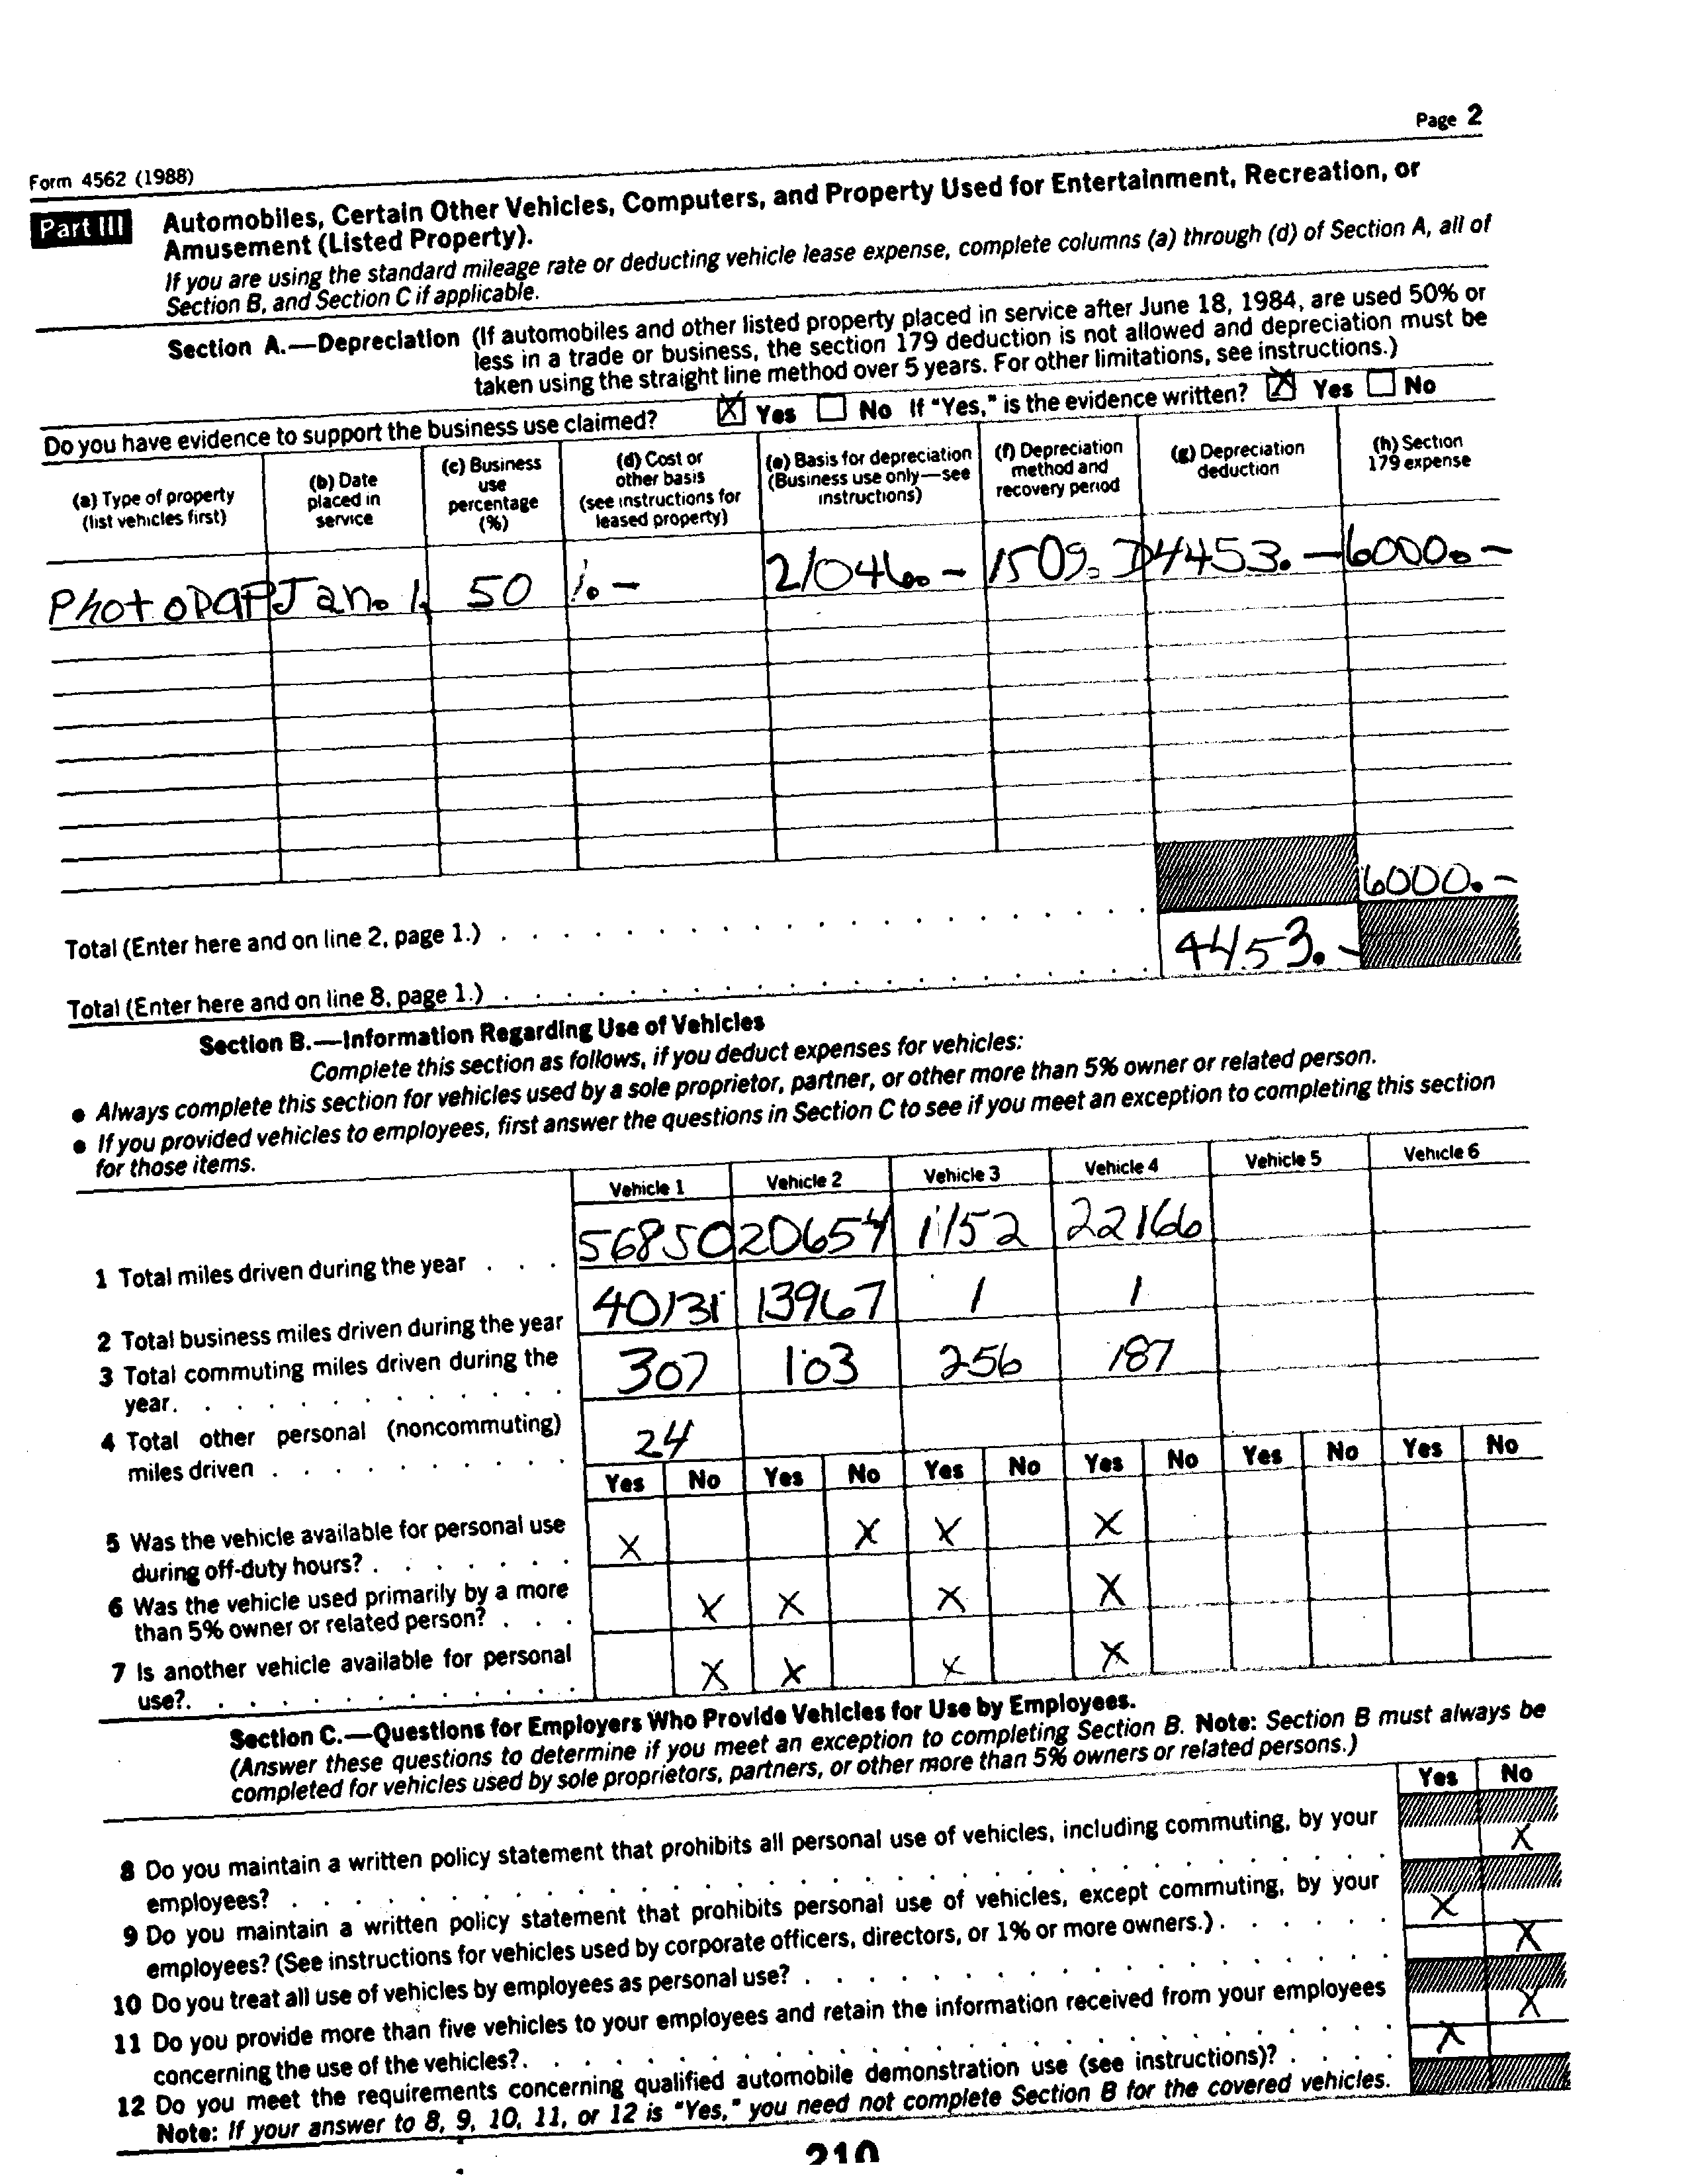 Page 2
Form 4562 (1988)
Part III Automobiles, Certain Other Vehicles, Computers, and Property Used for Entertainment, Recreation, or
Amusement (Listed Property).
If you are using the standard mileage rate or deducting vehicle lease expense, complete columns (a) through (d) of Section A, all of
Section B, and Section C if applicable.
Section A.—Depreciation (If automobiles and other listed property placed in service after June 18, 1984, are used 50% or
less in a trade or business, the section 179 deduction is not allowed and depreciation must be
taken using the straight line method over 5 years. For other limitations, see instructions.)
Do you have evidence to support the business use claimed? X Yes No If "Yes," is the evidence written? X Yes No
(a) Type of property
(list vehicles first)
(b) Date
placed in
service
(c) Business
use
percentage
(%)
(d) Cost or
other basis
(see instructions for
leased property)
(e) Basis for depreciation
(Business use only—see
instructions)
(f) Depreciation
method and
recovery period
(g) Depreciation
deduction
(h) Section
179 expense
Jan. 1. 50 1.- 21046.- D 4453.- 6000.-
6000.-
Total (Enter here and on line 2, page 1.)
4453.-
Total (Enter here and on line 8, page 1.)
Section B.—Information Regarding Use of Vehicles
Complete this section as follows, if you deduct expenses for vehicles:
● Always complete this section for vehicles used by a sole proprietor, partner, or other more than 5% owner or related person.
● If you provided vehicles to employees, first answer the questions in Section C to see if you meet an exception to completing this section
for those items.
Vehicle 1 Vehicle 2 Vehicle 3 Vehicle 4 Vehicle 5 Vehicle 6
1 Total miles driven during the year . . . 56850 20654 1152 22166
2 Total business miles driven during the year 40131 13967 1 1
3 Total commuting miles driven during the
year. 307 103 256 187
4 Total other personal (noncommuting)
miles driven 24
Yes No Yes No Yes No Yes No Yes No Yes No
5 Was the vehicle available for personal use
during off-duty hours? X X X X
6 Was the vehicle used primarily by a more
than 5% owner or related person? X X X X
7 Is another vehicle available for personal
use?. X X X X
Section C.—Questions for Employers Who Provide Vehicles for Use by Employees.
(Answer these questions to determine if you meet an exception to completing Section B. Note: Section B must always be
completed for vehicles used by sole proprietors, partners, or other more than 5% owners or related persons.)
Yes No
8 Do you maintain a written policy statement that prohibits all personal use of vehicles, including commuting, by your
employees? X
9 Do you maintain a written policy statement that prohibits personal use of vehicles, except commuting, by your
employees? (See instructions for vehicles used by corporate officers, directors, or 1% or more owners.) X
10 Do you treat all use of vehicles by employees as personal use? X
11 Do you provide more than five vehicles to your employees and retain the information received from your employees
concerning the use of the vehicles?. X
12 Do you meet the requirements concerning qualified automobile demonstration use (see instructions)? X
Note: If your answer to 8, 9, 10, 11, or 12 is "Yes," you need not complete Section B for the covered vehicles.
210